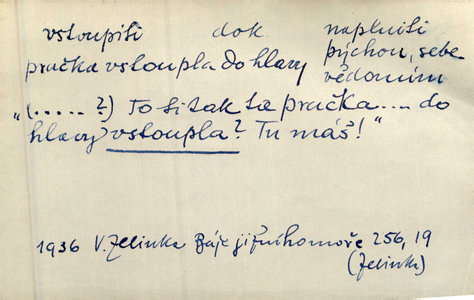 vstoupiti dok. naplniti
pračka vstoupla do hlavy pýchou, sebe
vědomím
„(.....?) To si tak ta pračka.... do
hlavy vstoupla? Tu máš!"
1936 V. Zelinka Báje jižního moře 256, 19
(Zelinka)